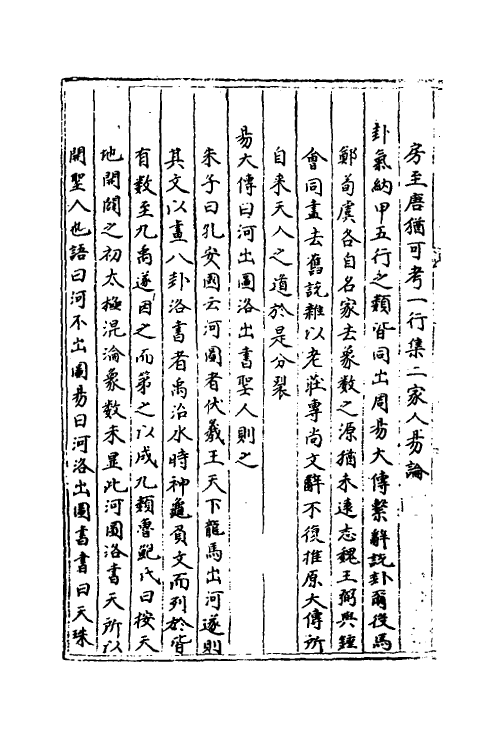 房至唐猶可考一行集二家人昜論
卦氣納甲五行之類皆同出周昜大傳繫辭説卦爾後馬
鄭荀虞各自名家去象數之源猶未逺志魏王弼與鍾
會同盡去舊説雜以老莊專尚文辭不復推原大傳所
自來天人之道於是分裂
昜大傳曰河出圖洛出書聖人則之
朱子曰孔安國云河圖者伏羲王天下龍馬出河遂則
其文以畫八卦洛書者禹治水時神龜負文而列於背
有数至九禹遂因之而第之以成九類魯鮑氏曰按天
地開闢之初太極混淪象数未显此河圖洛書天所以
開聖人也語曰河不出圖昜曰河洛出圖書書曰天球